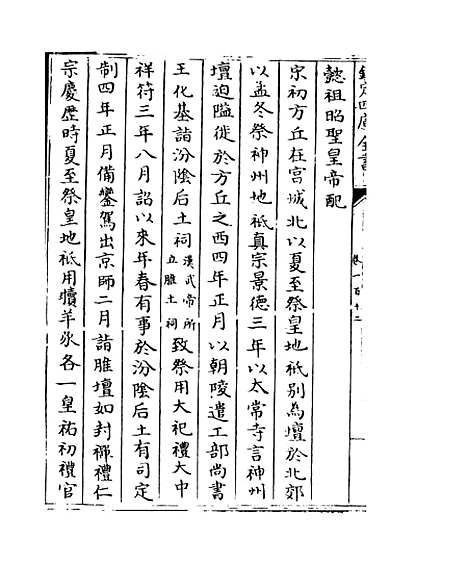 欽定四庫全書
卷一百十二
懿祖昭聖皇帝配
宗初方丘在宫城北以夏至祭皇地祇别為壇於北郊
以孟冬祭神州地祇真宗景德三年以太常寺言神州
壇迫隘徙於方丘之西四年正月以朝陵遣工部尚書
王化基詣汾隂后土祠漢武帝所立脽土祠致祭用大祀禮大中
祥符三年八月詔以來年春有事於汾隂后土有司定
制四年正月備鑾駕出京師二月詣脽壇如封禪禮仁
宗慶歴時夏至祭皇地祇用犢羊豕各一皇祐初禮官